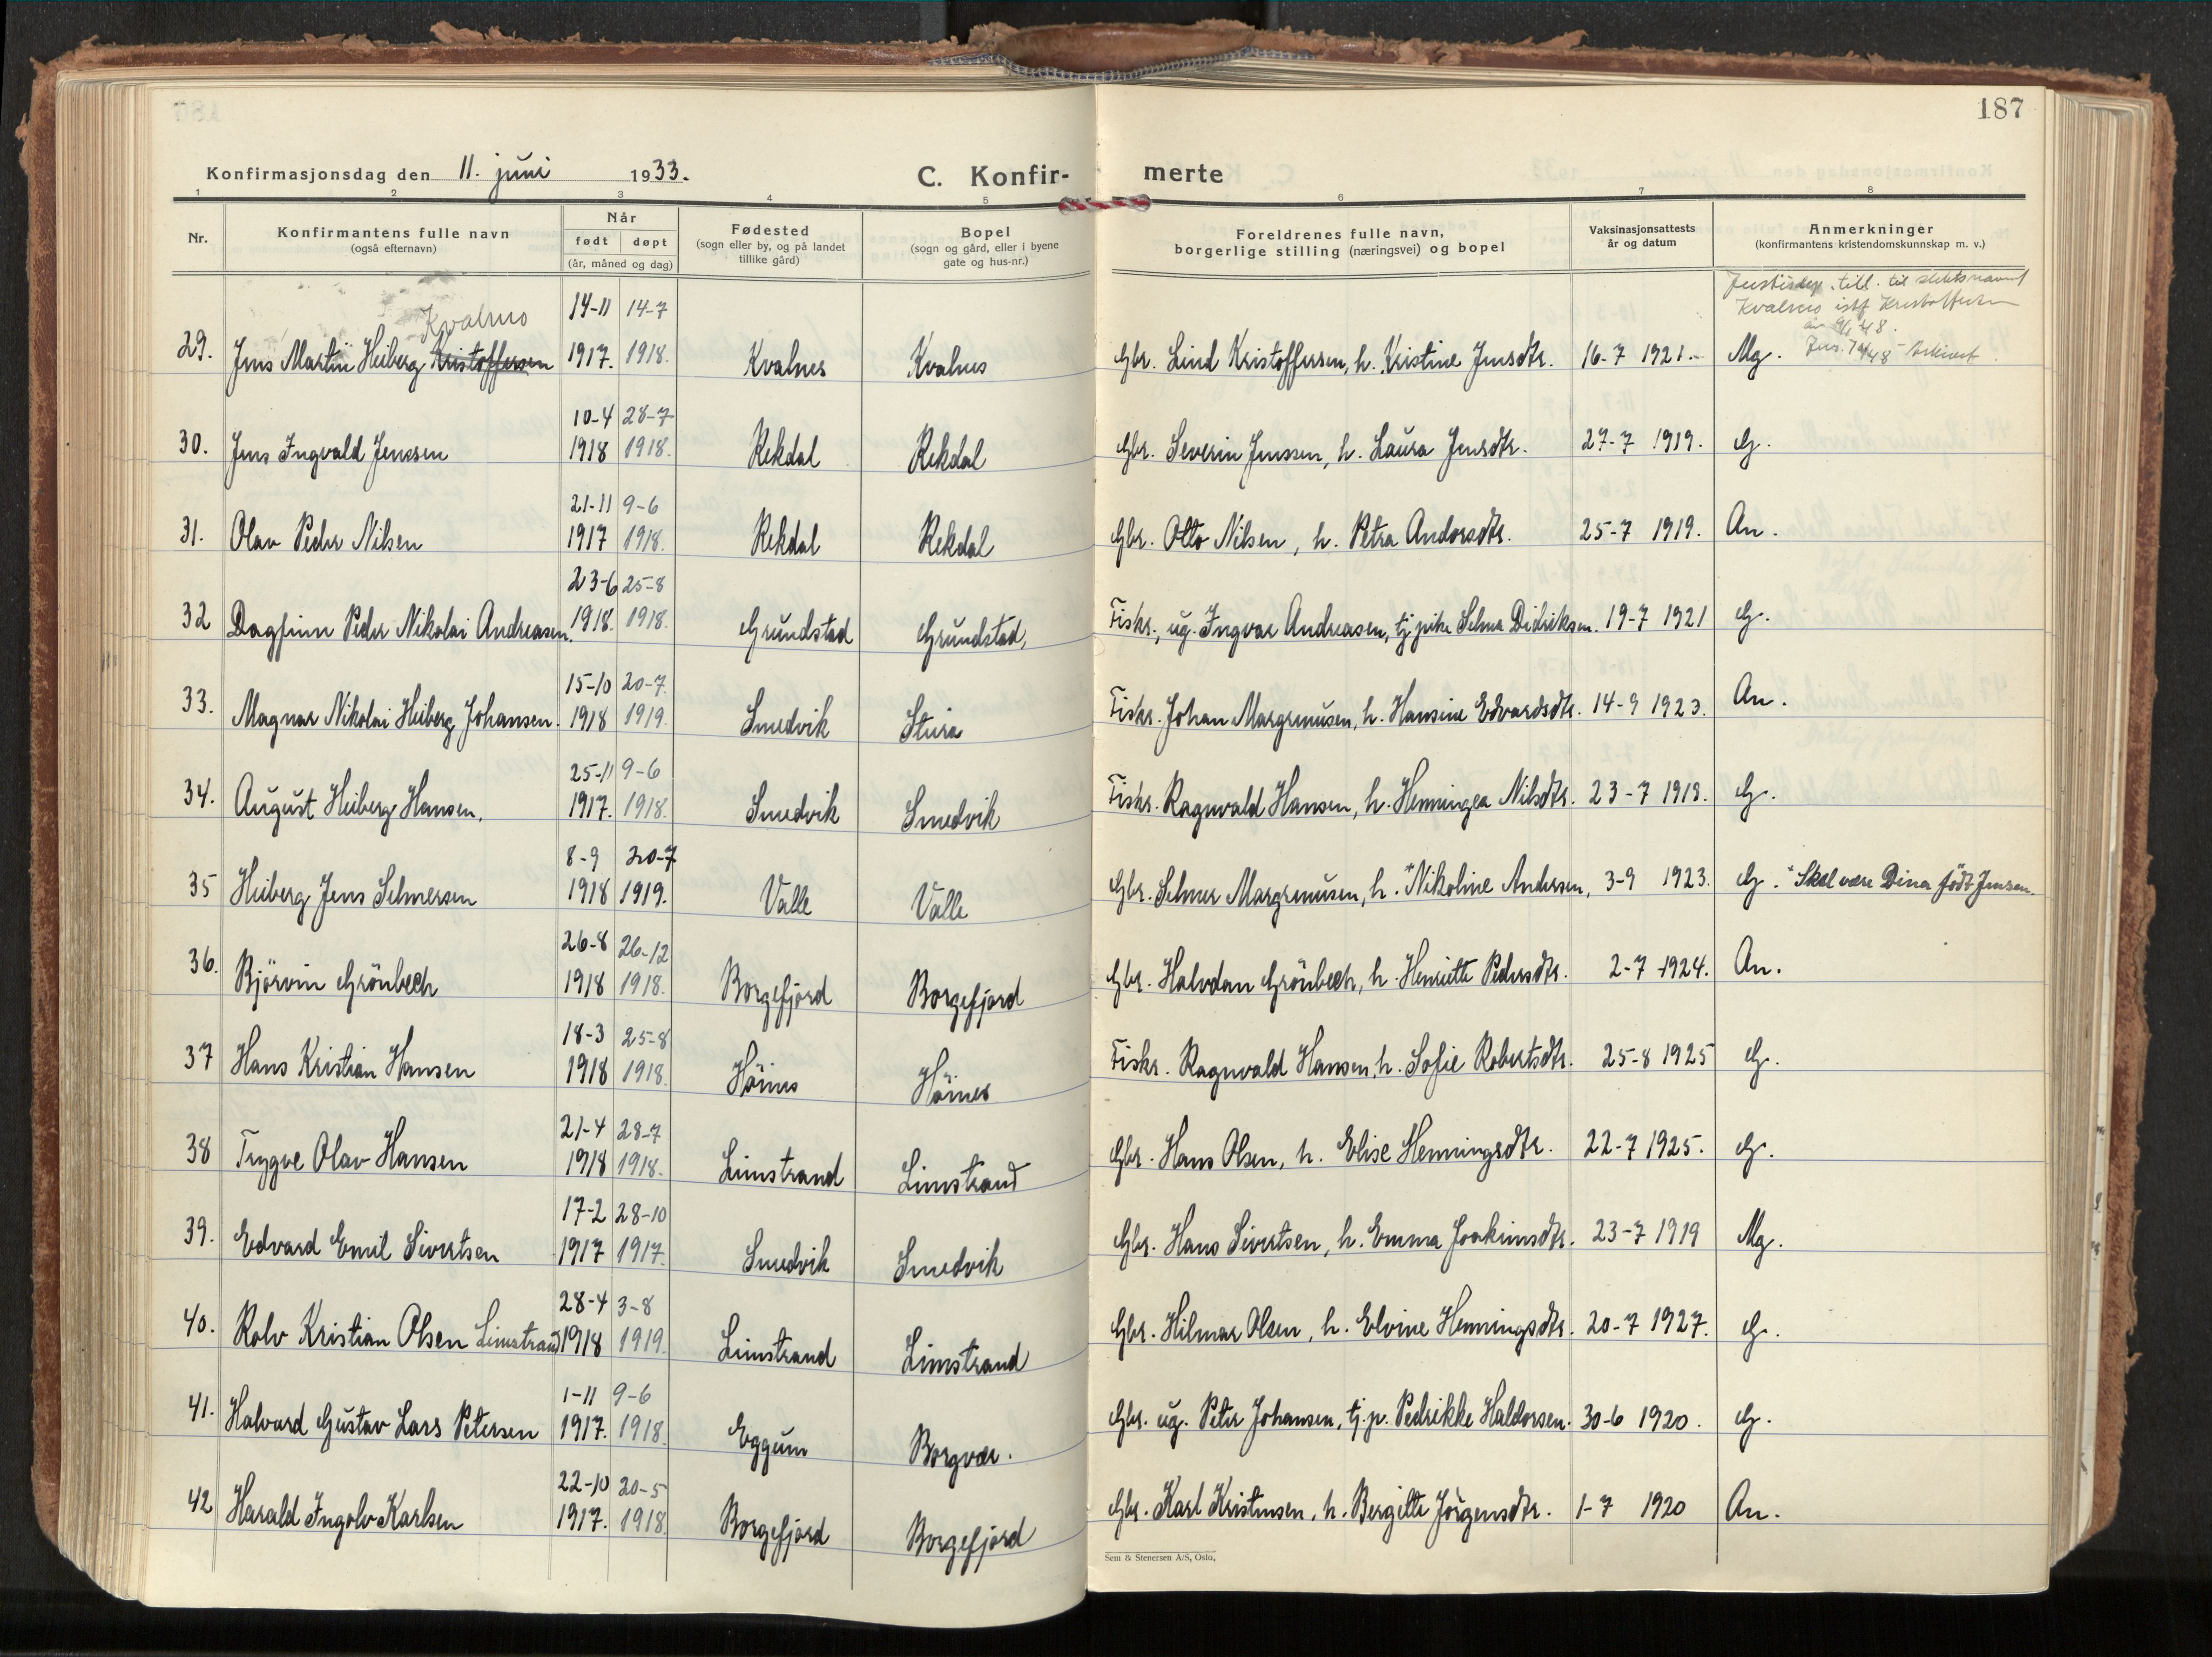 187
Konfirmasjonsdag den 11. juni 1933. C. Konfir- merte
1 2 3 4 5 6 7 8
Nr. Konfirmantens fulle navn (også efternavn) Når født døpt (år, måned og dag) Fødested (sogn eller by, og på landet tillike gård) Bopel (sogn og gård, eller i byene gate og hus-nr.) Foreldrenes fulle navn, borgerlige stilling (næringsvei) og bopel Vaksinasjonsattests år og datum Anmerkninger (konfirmantens kristendomskunnskap m. v.)
Justisdep. till. til slektsnavnet
Kvalnes istf Kristoffersen
Kvalnes 14-11 14-7
29. Jens Martin Heiberg Kristoffersen 1917. 1918. Kvalnes Kvalnes Gbr. Lind Kristoffersen, h. Kristine Jensdtr. 16-7 1921. Mg.
10-4 28-7
30. Jens Ingvald Jenssen 1918 1918. Rekdal Rekdal Gbr. Severin Jenssen, h. Laura Jensdtr. 27-7 1919. G.
21-11 9-6
31. Olav Peder Nilsen 1917 1918. Rekdal Rekdal Gbr. Otto Nilsen, h. Petra Andorsdtr. 25-7 1919. An.
23-6 25-8
32 Dagfinn Peder Nikolai Andreasen. 1918. 1918. Grundstad Grundstad, Fiskr., ug. Ingvar Andreasen, tj. pike Selma Didriksen. 19-7 1921 G.
15-10 20-7.
33. Magnar Nikolai Heiberg Johansen. 1918 1919. Smedvik Stura Fiskr. Johan Margrenusen, h. Hansine Edvardsdtr. 14-9 1923. An.
25-11 9-6
34. August Heiberg Hansen. 1917. 1918. Smedvik Smedvik Fiskr. Ragnvald Hansen, h. Henningea Nilsdtr. 23-7 1918. G.
8-9 20-7
35 Heiberg Jens Selmersen 1918 1919. Valle Valle Gbr. Selmer Margrenusen, h. *Nikoline Andersen, 3-9 1923. G. * Skal være Dina født Jensen.
26-8 26-12
36. Björvin Grönbech 1918 1918. Borgefjord Borgefjord Gbr. Halvdan Grönbech, h. Henriette Pedersdtr. 2-7 1924. An.
18-3 25-8
37 Hans Kristian Hansen 1918 1918. Hörnes Hörnes Fiskr. Ragnvald Hansen, h. Sofie Robertsdtr. 25-8 1925 G.
21-4 28-7
38 Trygve Olav Hansen 1918 1918. Limstrand Limstrand Gbr. Hans Olsen, h. Elise Henningsdtr. 22-7 1925. G.
17-2 28-10
39. Edvard Emil Sivertsen 1917 1917. Smedvik Smedvik Gbr. Hans Sivertsen, h. Emma Joakimsdtr. 23-7 1919 Mg.
28-4 3-8
40. Rolv Kristian Olsen Limstrand 1918 1919. Limstrand Limstrand Gbr. Hilmar Olsen, h. Elvine Henningsdtr. 20-7 1927. G.
1-11 9-6
41. Halvard Gustav Lars Petersen 1917. 1918. Eggum Borgvær. Gbr. ug. Peter Johansen, tj. p. Pedrikke Haldorsen. 30-6 1920. G.
22-10 20-5
42 Harald Ingolv Karlsen 1917. 1918. Borgefjord Borgefjord Gbr. Karl Kristensen, h. Bergitte Jörgensdtr. 1-7 1920 An.
Sem & Stenersen A/S, Oslo.